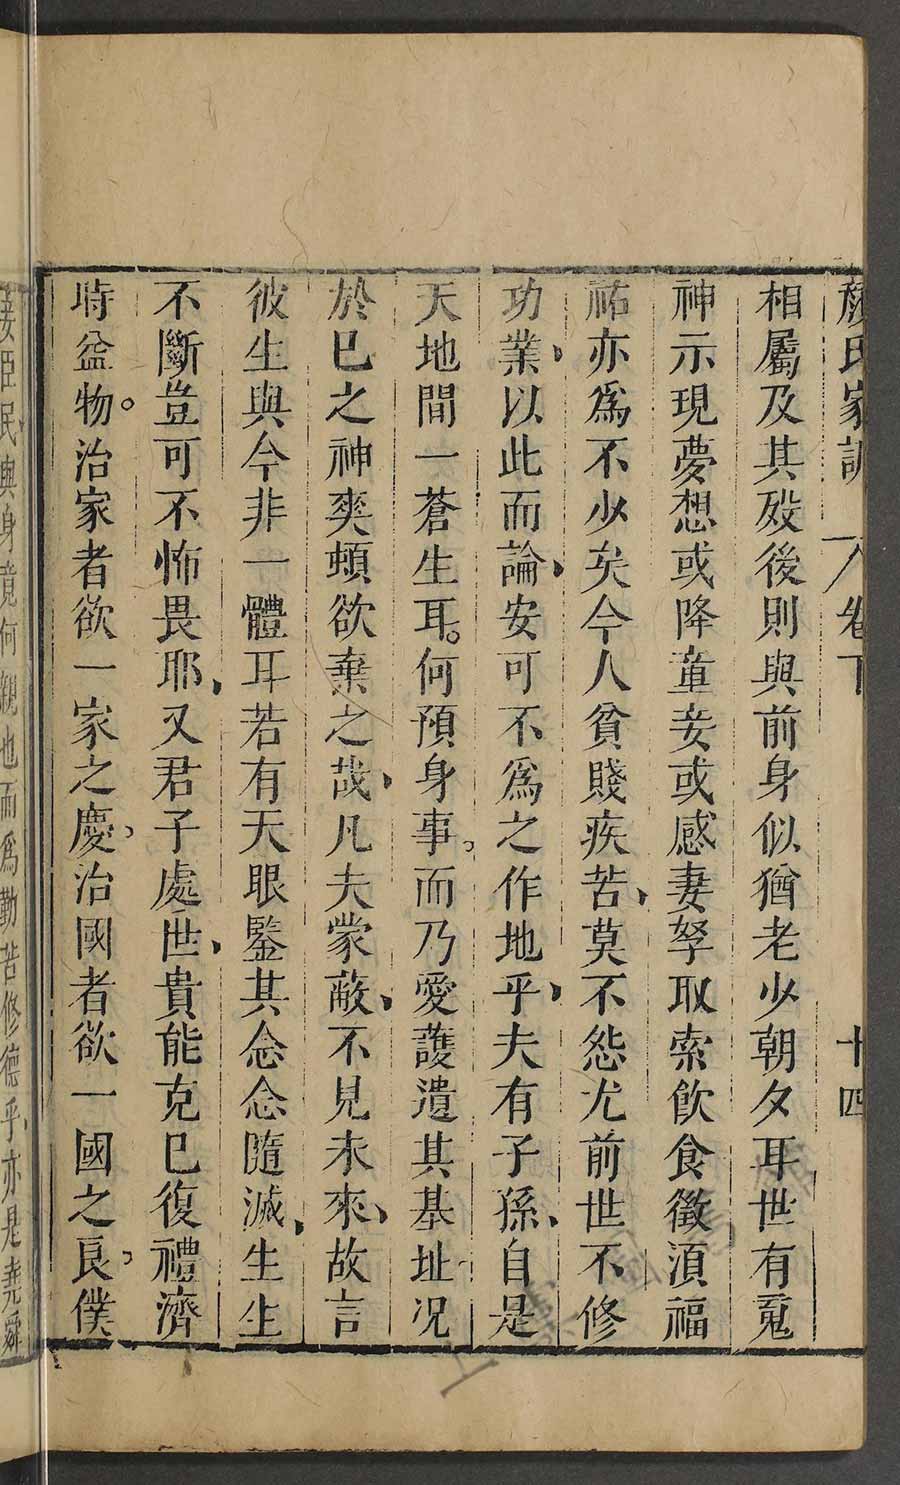 顏氏家訓 卷下 十四
相屬及其歿後則與前身似猶老少朝夕耳世有䰟
神示現夢想或降童妾或感妻孥取索飲食徵湏福
祐亦爲不少矣今人貧賤疾苦莫不怨尤前世不修
功業以此而論安可不爲之作地乎夫有子孫自是
天地間一蒼生耳。何預身事。而乃愛護遺其基址况
於巳之神爽頓欲棄之哉凡夫蒙蔽不見未來故言
彼生與今非一體耳若有天眼鑒其念念隨滅生生
不斷豈可不怖畏耶又君子處世貴能克巳復禮濟
時益物。治家者欲一家之慶治國者欲一國之良僕
妾臣民與身竟何親也而爲勤苦修德乎亦是堯舜